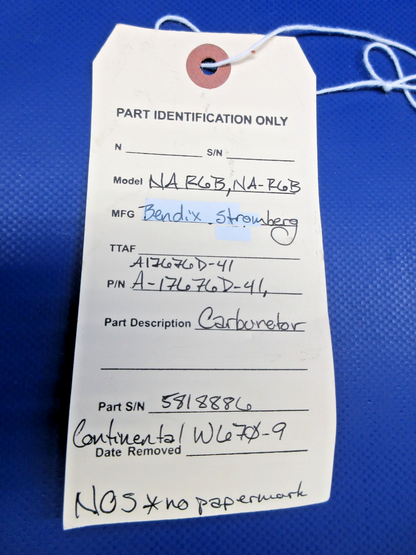 PART IDENTIFICATION ONLY
N ________ S/N ________
Model NA R6B, NA-R6B
MFG Bendix Stromberg
TTAF
A17676D-41
P/N A-17676D-41,
Part Description Carburetor
Part S/N 5818886
Continental W670-9
Date Removed
NOS * no papermark